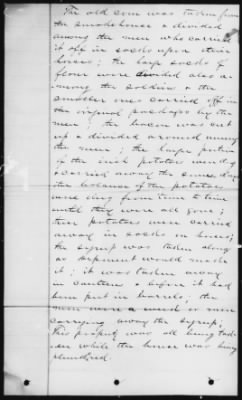 The old corn was taken from
the smokehouse & divided
among the men who carried
it off in sacks upon their
horses; the large sacks of
flour were divided also a-
mong the soldiers & the
smaller ones carried off in
the original packages by the
men; the bacon was cut
up & divided around among
the men; the larger portion
of the irish potatoes were dug
& carried away the same day
the balance of the potatoes
were dug from time to time
until they were all gone;
these potatoes were carried
away in sacks on horses;
the syrup was taken along
as
it; it was taken away
in canteens & before it had
been put in barrels; the
men were
carrying away the syrup;
This property was all being tak-
en while the house was being
plundered.